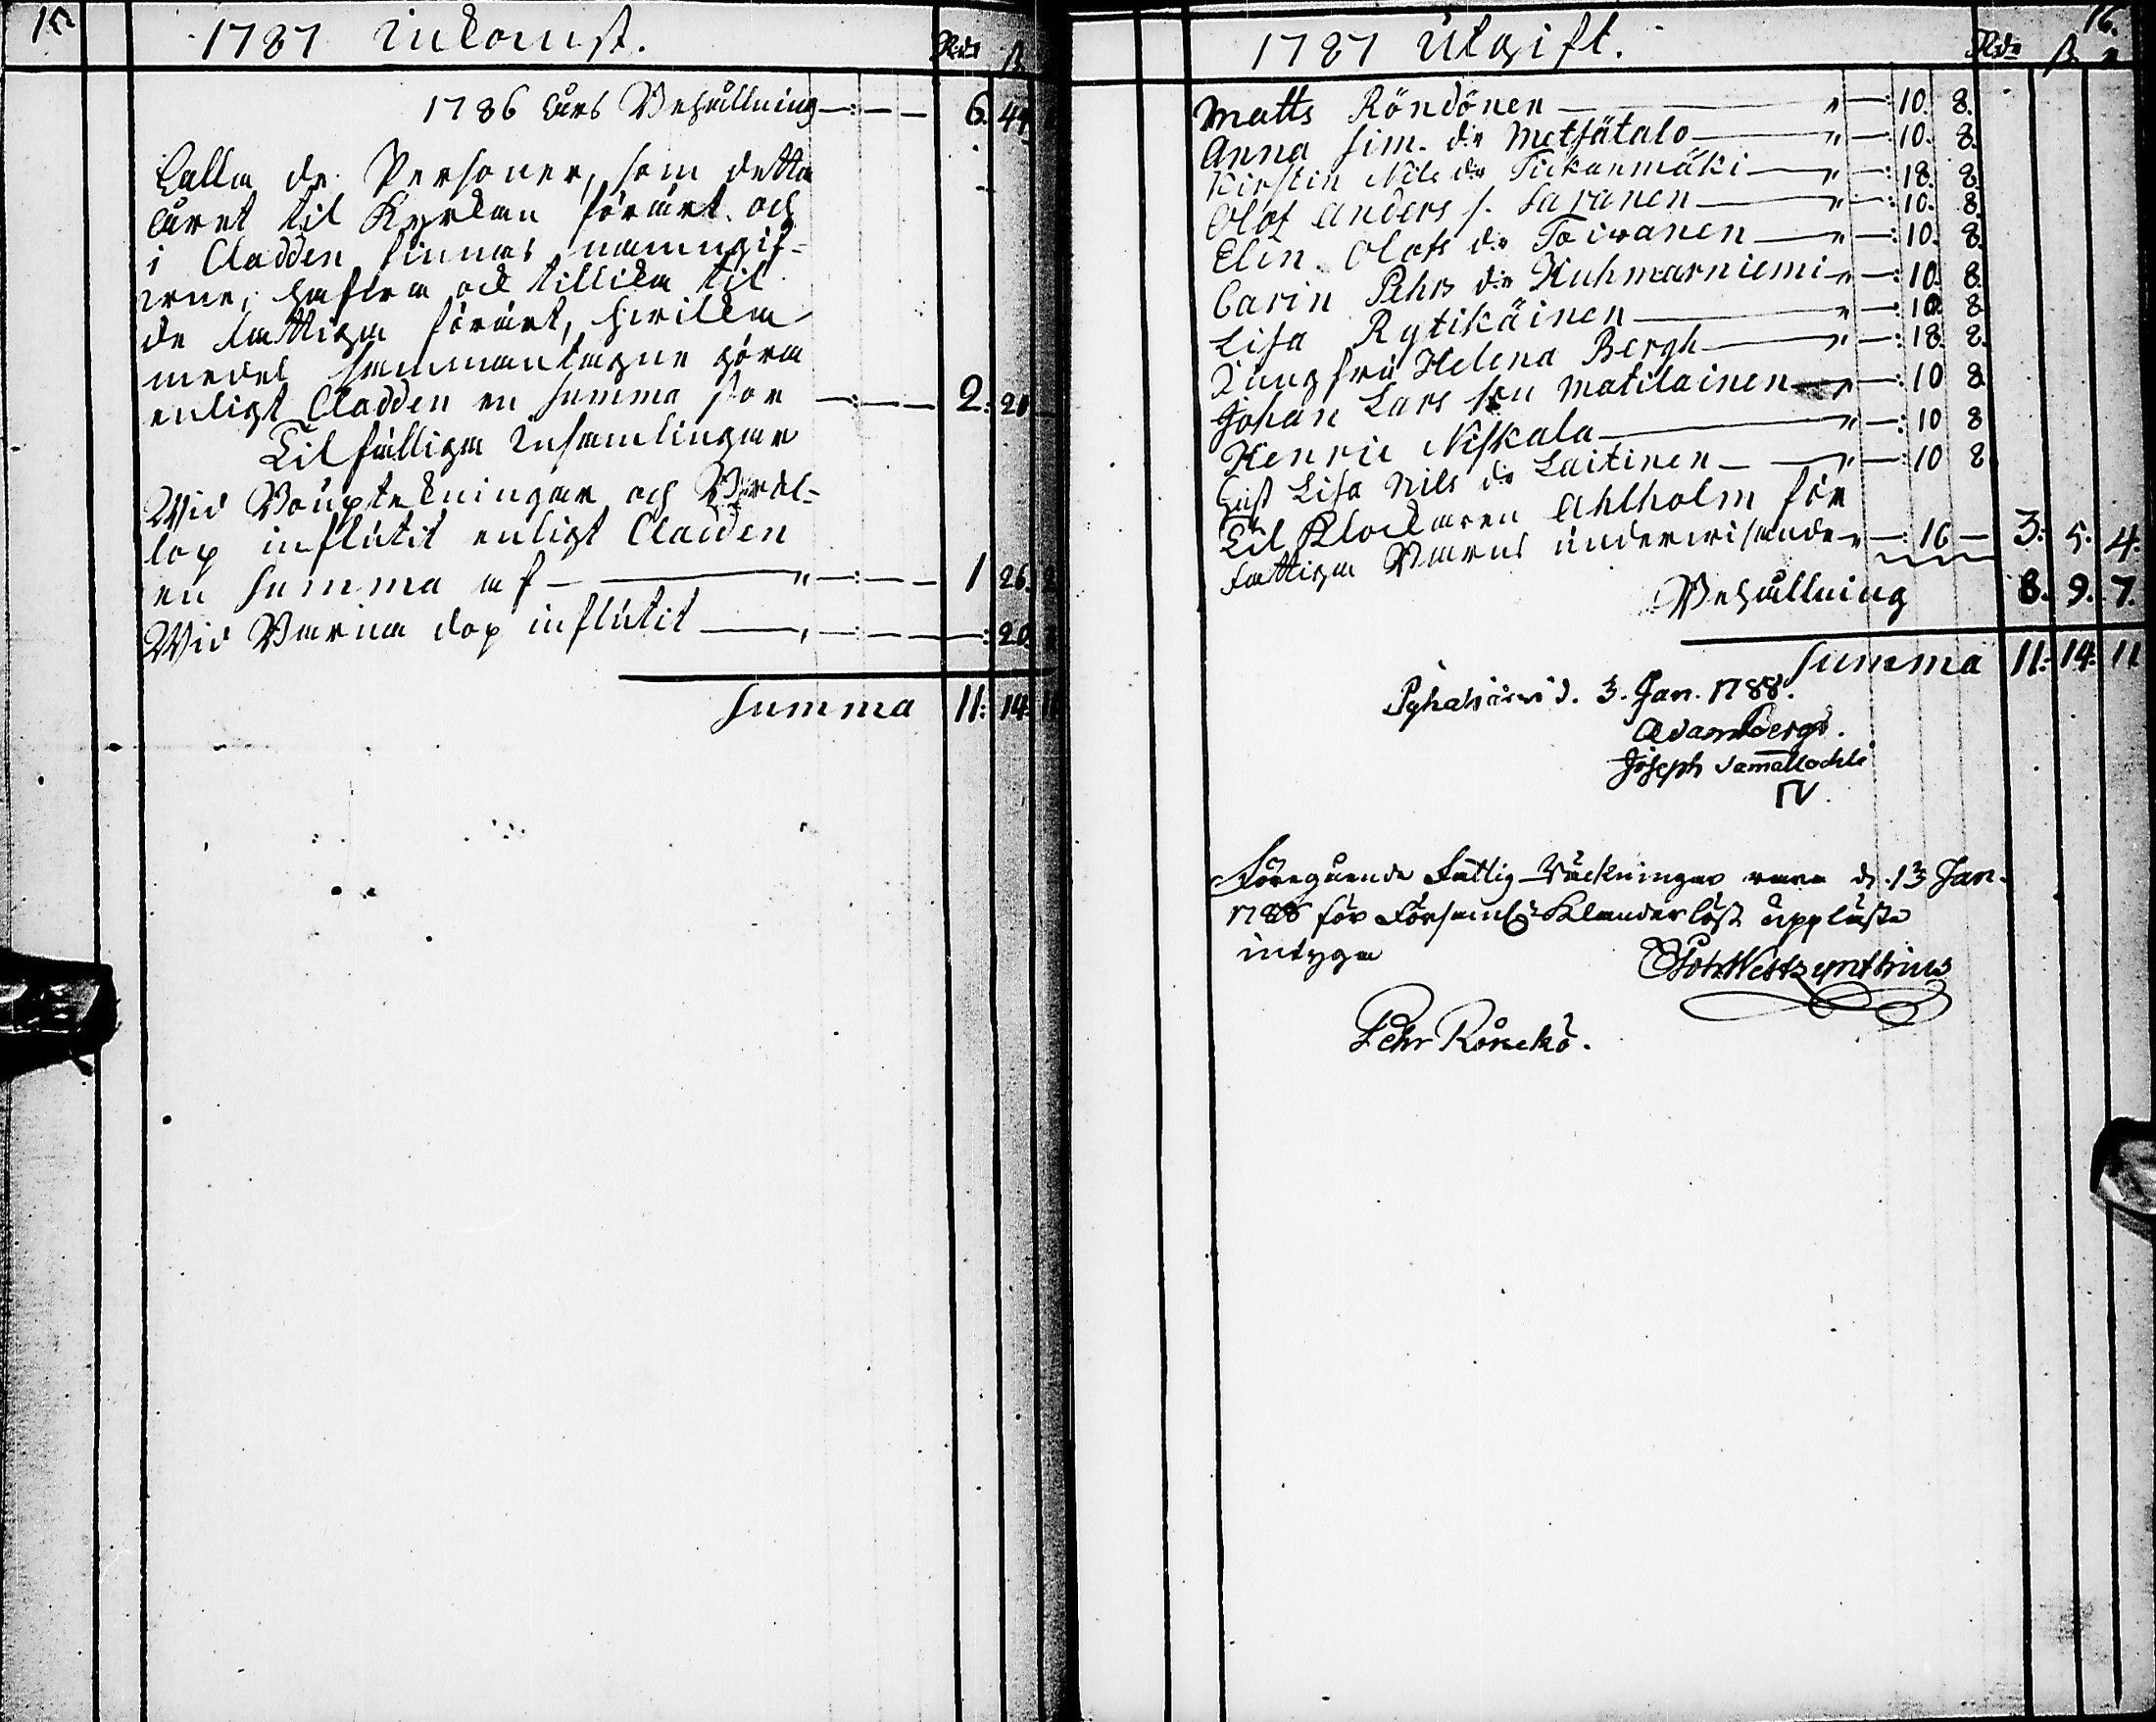 15
1787 Inkomst.
Rdr ß
1786 års Behållning 6. 44
Alla de Personer, som detta
året til Kyrkan förärt och
i Cladden finnas namngif-
vne, hafva ock tillika til
de fattiga förärt, hvilka
medel sammantagne göra
enligt Cladden en summa stor 2. 20
Til fälliga Insamlingar
Wid Bouptekningar och Bröl-
lop influtit enligt Cladden
en Summa af 1 26.
Wid Barna dop influtit 20.
Summa 11: 14.
16.
1787 Utgift.
Rdr ß
Matts Röndönen 10. 8.
Anna Sim. dr Metsätalo 10. 8.
Kirstin Nils dr Tickanmäki 18. 8.
Olof Anders s. Saranen 10. 8.
Elin Olofs dr Toivanen 10. 8.
Carin Pehrs dr Kuhmarniemi 10. 8.
Lisa Rytikäinen 10. 8
Jungfru Helena Bergh 18. 8.
Johan Lars son Matilainen 10 8
Henric Niskala 10 8
Lisa Nils dr Laitinen 10 8
Til Klockaren Ahlholm för
fattiga Barns underwisande 16 — 3. 5. 4.
Behållning 8. 9. 7.
Summa 11: 14: 11
Pyhäjärvi d. 3. Jan. 1788.
Adam Bergh.
Joseph
Föregående Fattig-Räkningar voro d. 13 Jan.
1788 för Församl. Klanderlöst uppläste
intyga
Joh. Westzynthius
Pehr Rönckö.